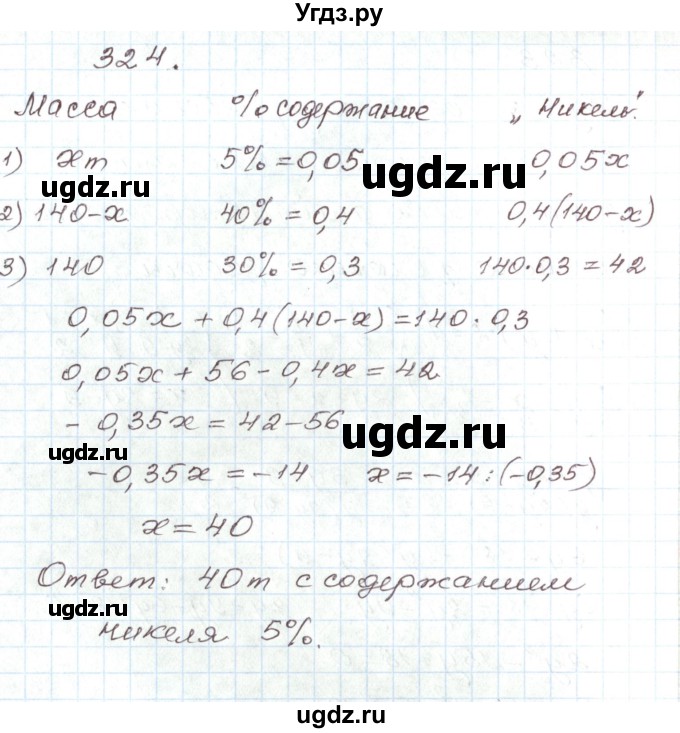 Угдз.ру
324.
Масса % содержание "Никель".
1) xт 5% = 0,05 0,05x
ugdz.ru ugdz.ru
2) 140-x 40% = 0,4 0,4(140-x)
3) 140 30% = 0,3 140·0,3 = 42
0,05x + 0,4(140-x) = 140·0,3
0,05x + 56 - 0,4x = 42
- 0,35x = 42-56
ugdz.ru ugdz.ru
-0,35x = -14 x = -14:(-0,35)
x = 40
Ответ: 40т с содержанием
ugdz.ru
никеля 5%.
ugdz.ru